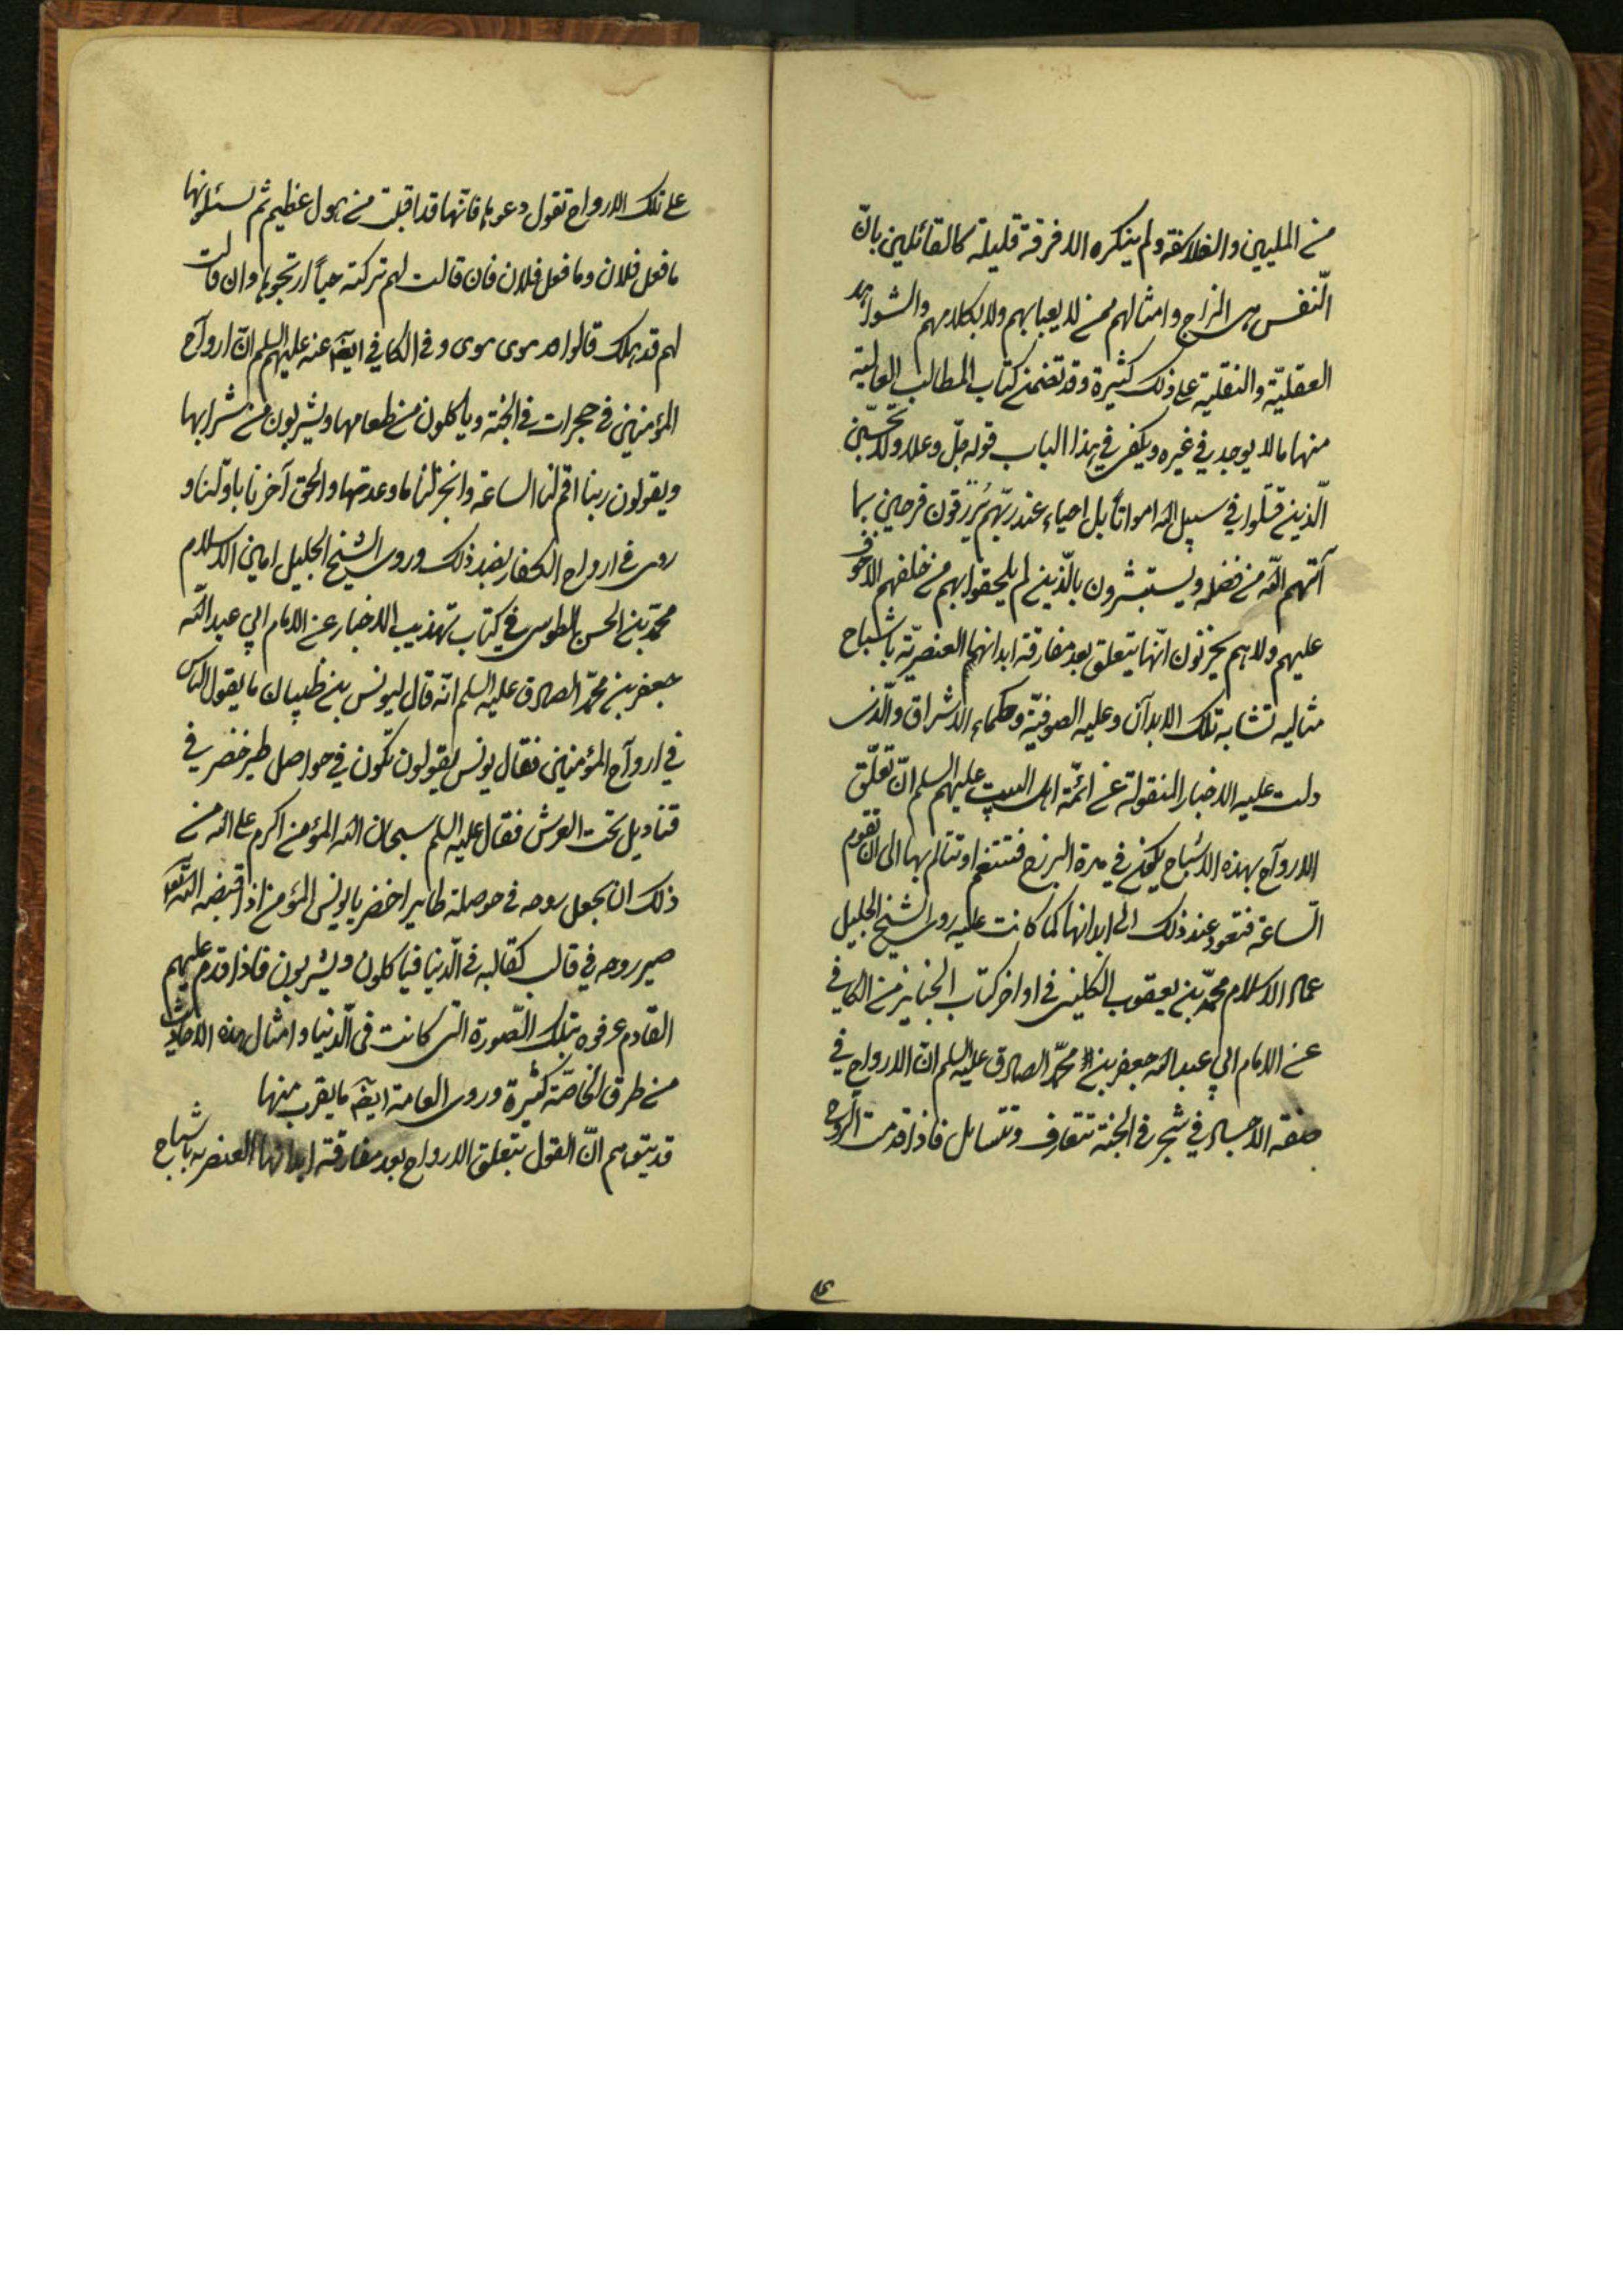 من المليين والفلاسفة ولم ينكره الا فرقة قليلة كالقائلين بانّ
النّفس هى المزاج وامثالهم ممن لا يعبا بهم ولا بكلامهم والشواهد
العقليّة والنقلية على ذلك كثيرة وقد تضمن كتاب المطالب العالية
منها ما لا يوجد في غيره ويكفى في هذا الباب قوله جلّ وعلا ولا تحسبنّ
الّذين قتلوا في سبيل الله امواتاً بل احياء عند ربّهم يُرزقون فرحين بما
آتيهم الله من فضله ويستبشرون بالّذين لم يلحقوا بهم من خلفهم الا خوف
عليهم ولا هم يحزنون انّها يتعلق بعد مفارقة ابدانها العنصريّة باشباح
مثاليه تشابه تلك الابدان وعليه الصوفيّة وحكماء الاشراق والّذى
دلت عليه الاخبار المنقولة عن ائمّة اهل البيت عليهم السلم انّ تعلّق
الارواح بهذه الاشباح يكون في مدة البرزخ فتتنعم او تتالم بها الى ان تقوم
السّاعة فتعود عند ذلك الى ابدانها كما كانت عليه روى الشيخ الجليل
عماد الاسلام محمّد بن يعقوب الكلينى فى اواخر كتاب الجنايز من الكافى
عن الامام ابي عبد الله جعفر بن محمّد الصادق عليه السلم انّ الارواح في
صفة الاجساد في شجر في الجنة تتعارف وتتسايل فاذا قدمت الروح
على تلك الارواح تقول دعوها فانّها قد اقبلت من هول عظيم ثم يسئلونها
ما فعل فلان وما فعل فلان فان قالت لهم تركته حياً ارتجوها وان قالت
لهم قد هلك قالوا قد هوى هوى وفى الكافي ايضً عنه عليهم السلم انّ ارواح
المؤمنين في حجرات في الجنة وياكلون من طعامها ويشربون من شرابها
ويقولون ربنا اقم لنا الساعة وانجز لنا ما وعدتنا والحق آخرنا باوّلنا و
روى في ارواح الكفار بضد ذلك وروى الشيخ الجليل امين الاسلام
محمّد بن الحسن الطوسى في كتاب تهذيب الاخبار عن الامام ابي عبد الله
جعفر بن محمّد الصادق عليه السلم انّه قال ليونس بن ظبيان ما يقول الناس
في ارواح المؤمنين فقال يونس يقولون تكون في حواصل طير خضر في
قناديل تحت العرش فقال عليه السلم سبحان الله المؤمن اكرم على الله من
ذلك ان يجعل روحه في حوصلة طاير اخضر يا يونس المؤمن اذا قبضه الله تعالى
صير روحه في قالب كقالبه في الّدنيا فياكلون ويشربون فاذا قدم عليهم
القادم عرفوه بتلك الصّورة التى كانت في الّدنيا وامثال هذه الاحاديث
من طرق الخاصّة كثيرة وروى العامة ايضً ما يقرب منها
قد يتوهم انّ القول بتعلق الارواح بعد مفارقة ابدانها العنصريه باشباح